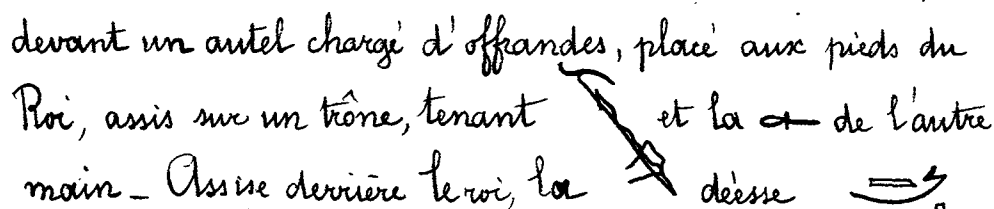 devant un autel chargé d'offrandes, placé aux pieds du
Roi, assis sur un trône, tenant et la de l'autre
main - Assise derrière le roi, la déesse